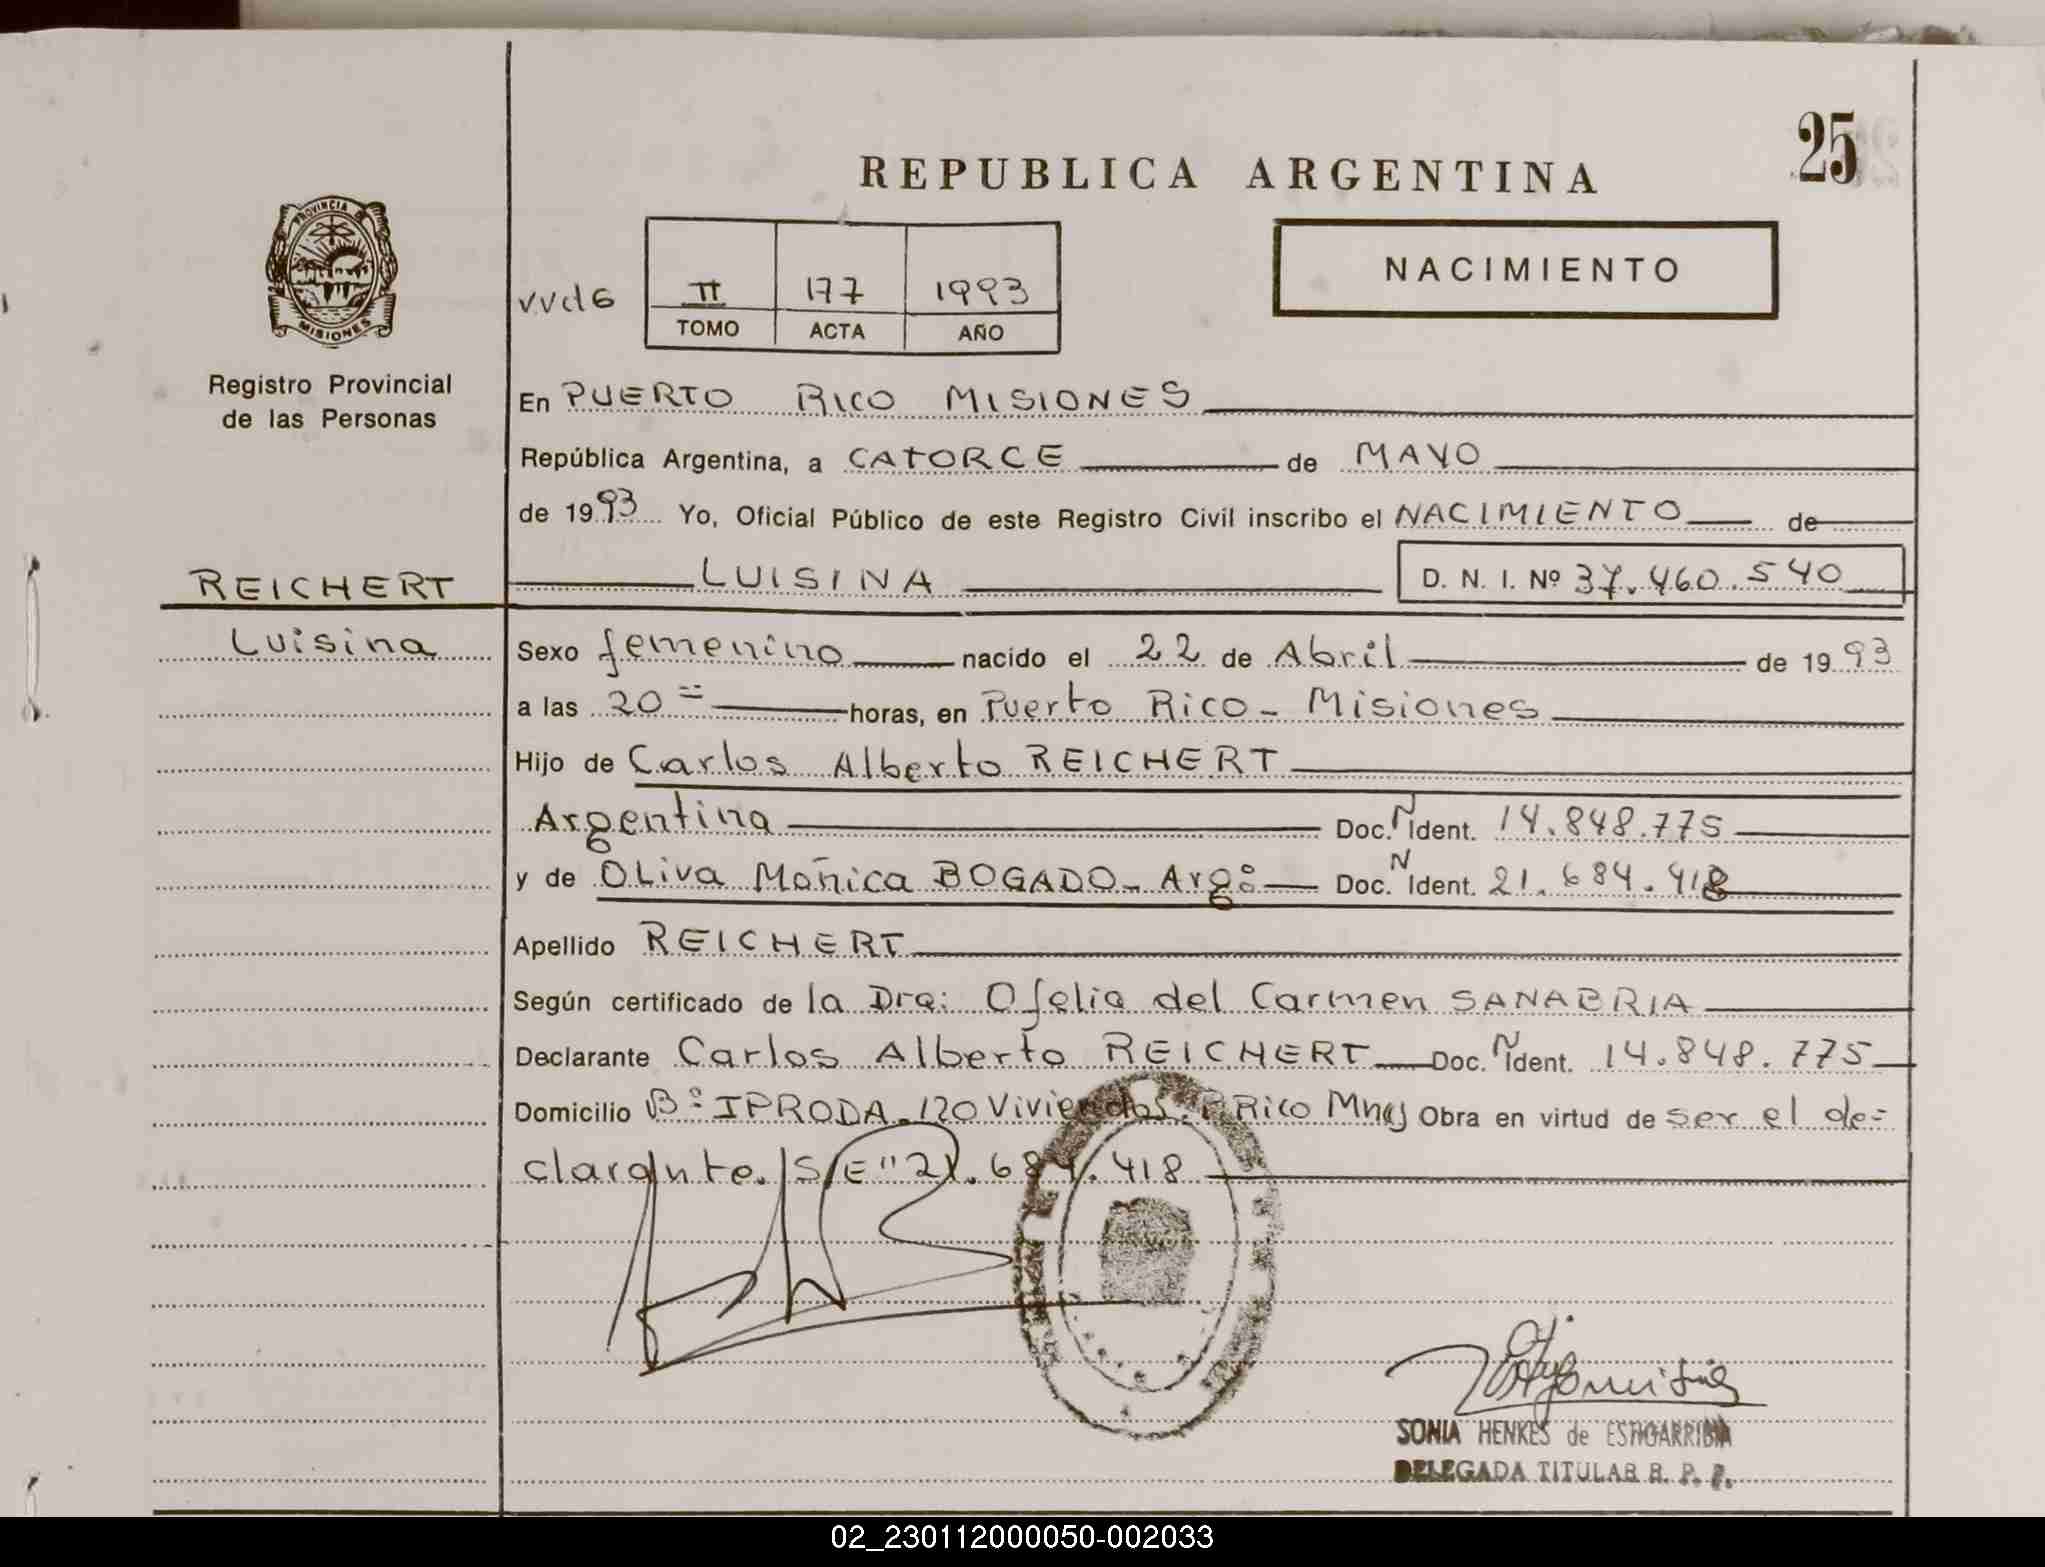 25
REPUBLICA ARGENTINA
PROVINCIA DE
MISIONES
NACIMIENTO
vvd6 II 177 1993
TOMO ACTA AÑO
Registro Provincial
de las Personas
En PUERTO RICO MISIONES
República Argentina, a CATORCE de MAYO
de 1993 Yo, Oficial Público de este Registro Civil inscribo el NACIMIENTO de
REICHERT LUISINA D. N. I. Nº 37.460.540
Luisina Sexo femenino nacido el 22 de Abril de 1993
a las 20 = horas, en Puerto Rico - Misiones
Hijo de Carlos Alberto REICHERT
Argentina Doc. N Ident. 14.848.775
y de OLiva Moñica BOGADO - Argº Doc. N Ident. 21.684.418
Apellido REICHERT
Según certificado de la Dra: Ofelia del Carmen SANABRIA
Declarante Carlos Alberto REICHERT Doc. N Ident. 14.848.775
Domicilio Bº IPRODA - 120 Viviendas. P. Rico Mnes Obra en virtud de ser el de=
clarante. S/E "21.684.418
SONIA HENKES de ESTIGARRIBIA
DELEGADA TITULAR R. P. P.
02_230112000050-002033